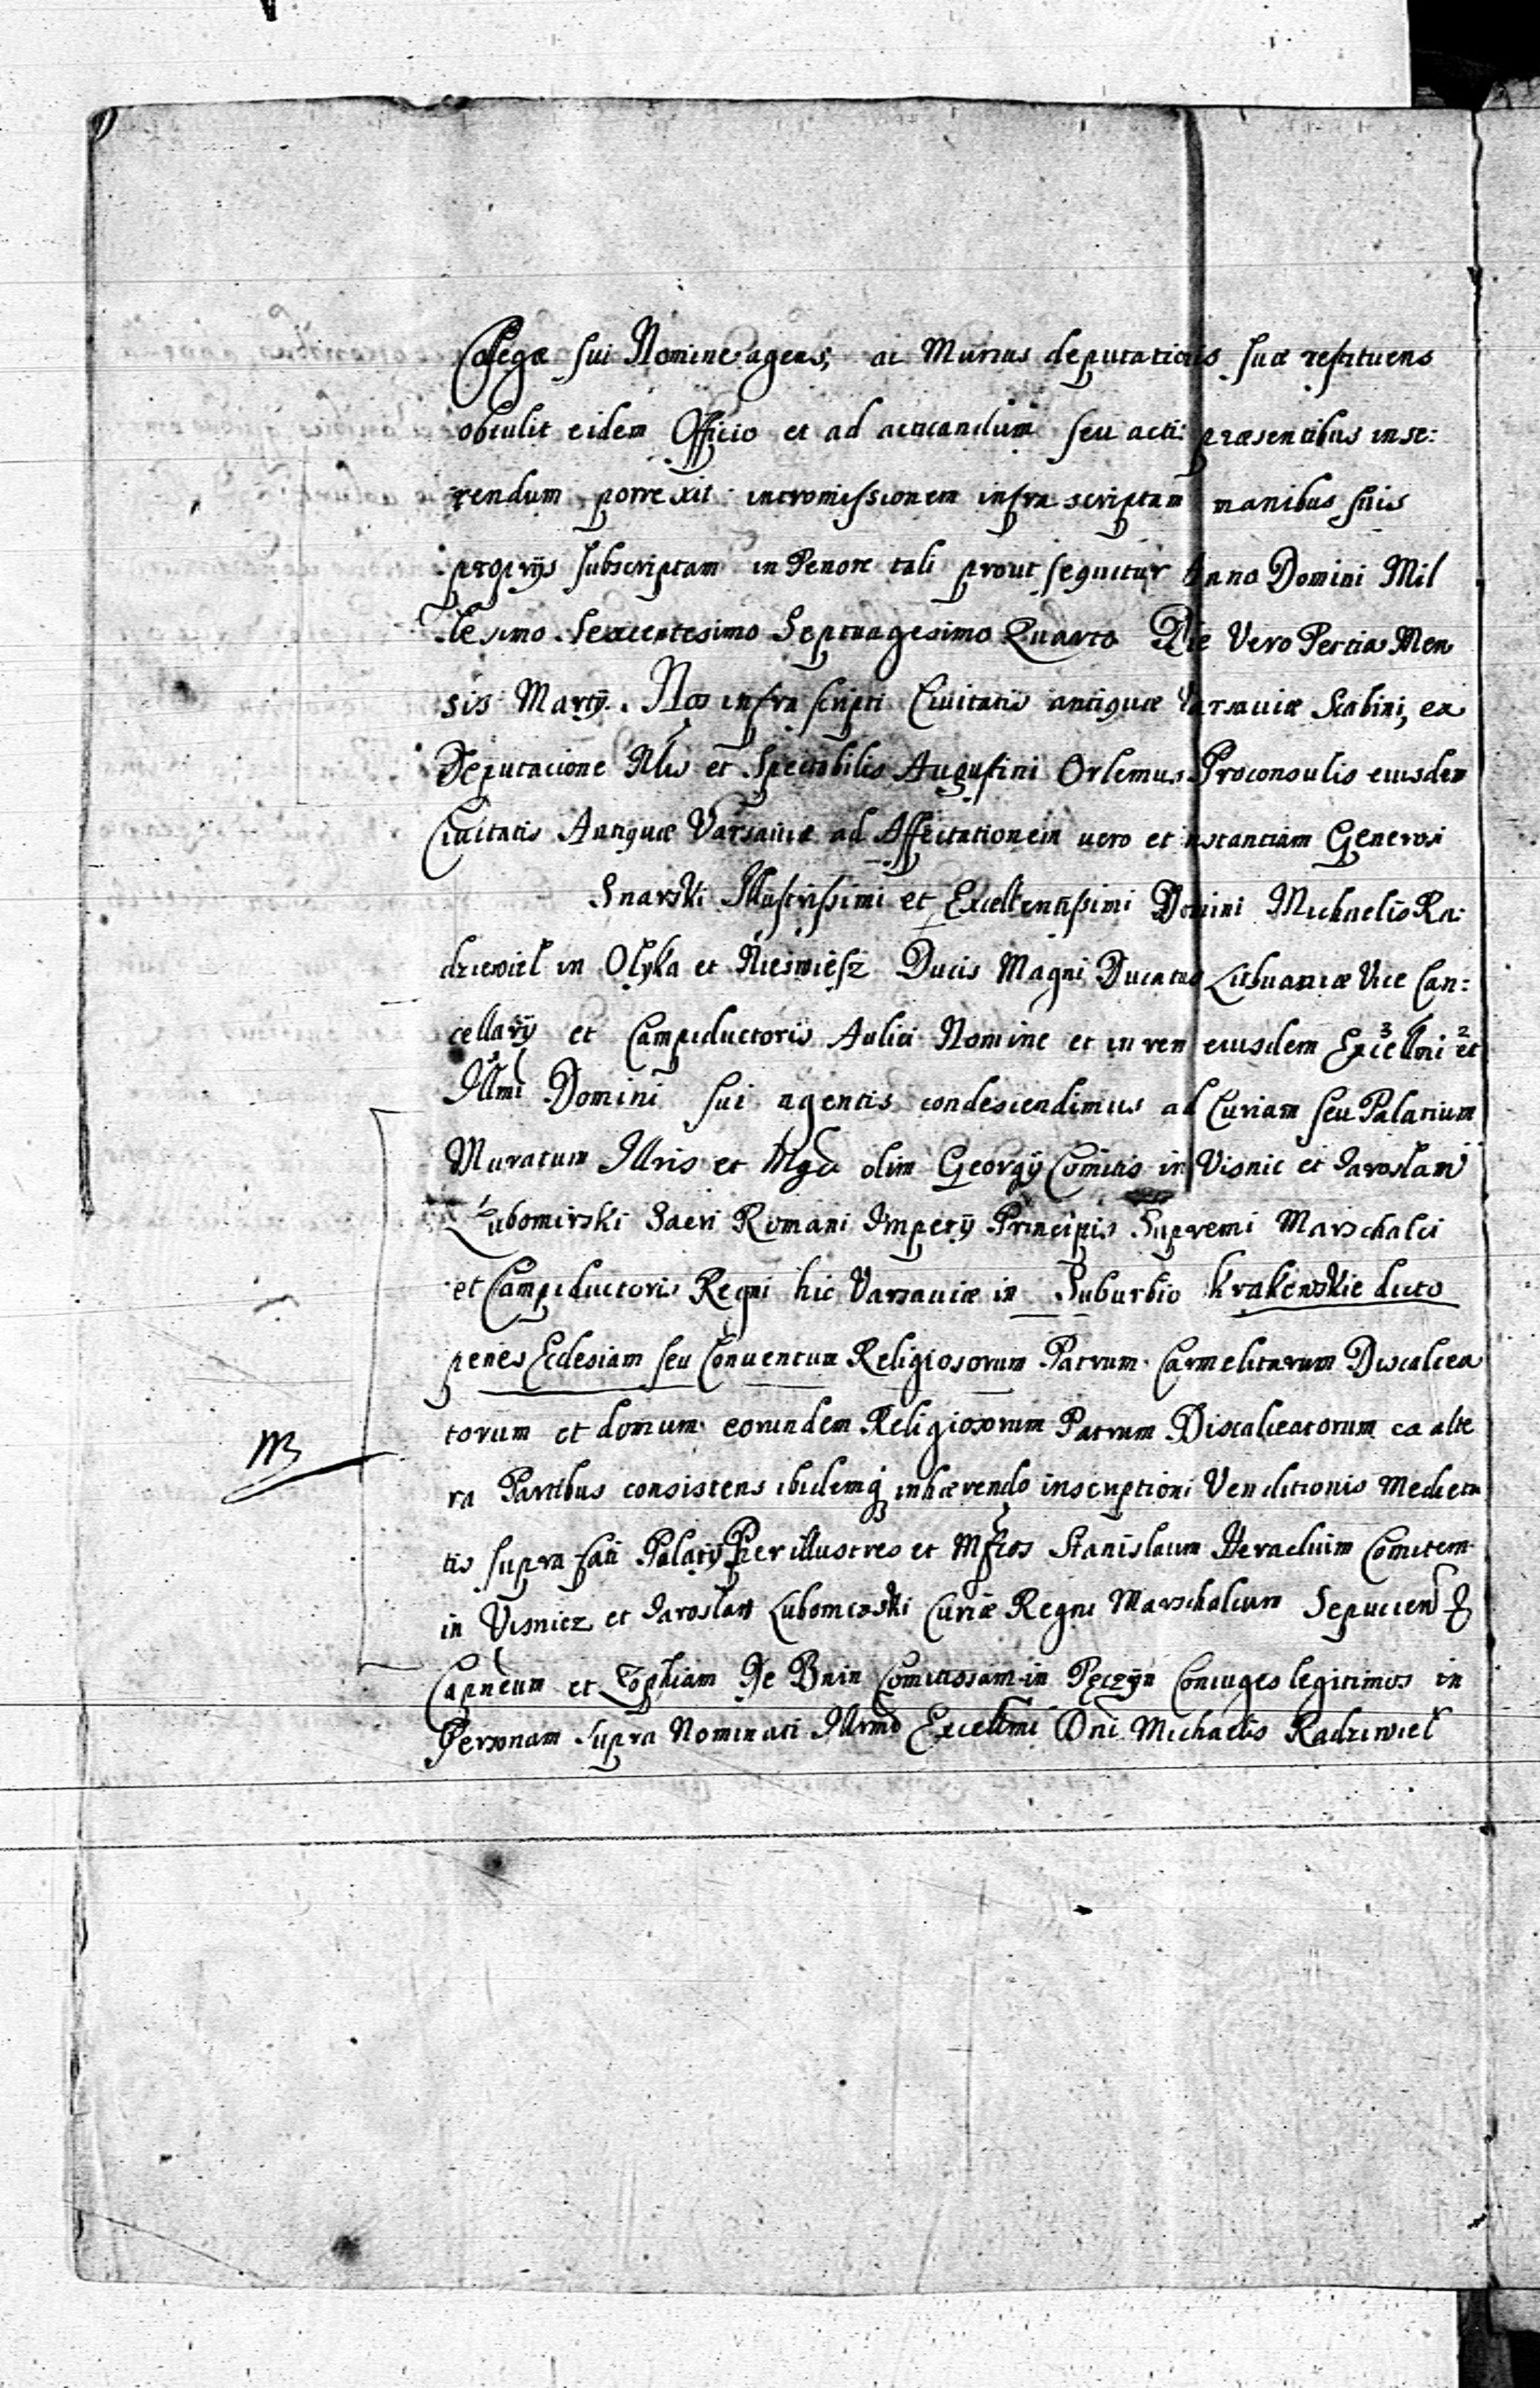 Collegæ sui Nomine agens, ac Munus deputationis suæ restituens
obtulit eidem Officio et ad acticandum seu actis præsentibus inse:
rendum porrexit intromissionem infra scriptam manibus suis
proprijs subscriptam in Tenore tali prout sequitur Anno Domini Mil
lesimo Sexcentesimo Septuagesimo Quarto Die Vero Tertia Men
sis Martij. Nos infra scripti Civitatis antiquæ Varsaviæ Scabini, ex
Deputacione Nlis et Spectabilis Augustini Orlemus Proconsulis eiusdem
Civitatis Antiquæ Varsaviæ ad Affectationem vero et instantiam Generosi
Snarski Illustrissimi et Excellentissimi Domini Michaelis Ra:
dziewiel in Olyka et Nieswiesz Ducis Magni Ducatus Lithuaniæ Vice Can:
cellarij et Campiductoris Aulici Nomine et in rem eiusdem Excellmi et
Illmi Domini sui agentis condescendimus ad Curiam seu Palatium
Muratum Illris et Mgci olim Georgij Comitis in Visnic et Jaroslaw
Lubomirski Sacri Romani Imperij Principis Supremi Marschalci
et Campiductoris Regni hic Varsaviæ in Suburbio Krakenskie dicto
penes Ecclesiam seu Conventum Religiosorum Patrum Carmelitarum Discalcea
torum et domum eorundem Religiosorum Patrum Discalceatorum ex alte
ra Partibus consistens ibidemq inhærendo inscriptioni Venditionis Medieta
tis supra fati Palatij Per illustres et Mficos Stanislaum Heraclium Comitem
in Visnicz et Jaroslaw Lubomirski Curiæ Regni Marschalcum Sepucien
Capneum et Zophiam De Bnin Comitissam in Pęczyn Coniuges legitimos in
Personam supra Nominati Illrmi Excellmi Dni Michaelis Radziwiel
NB